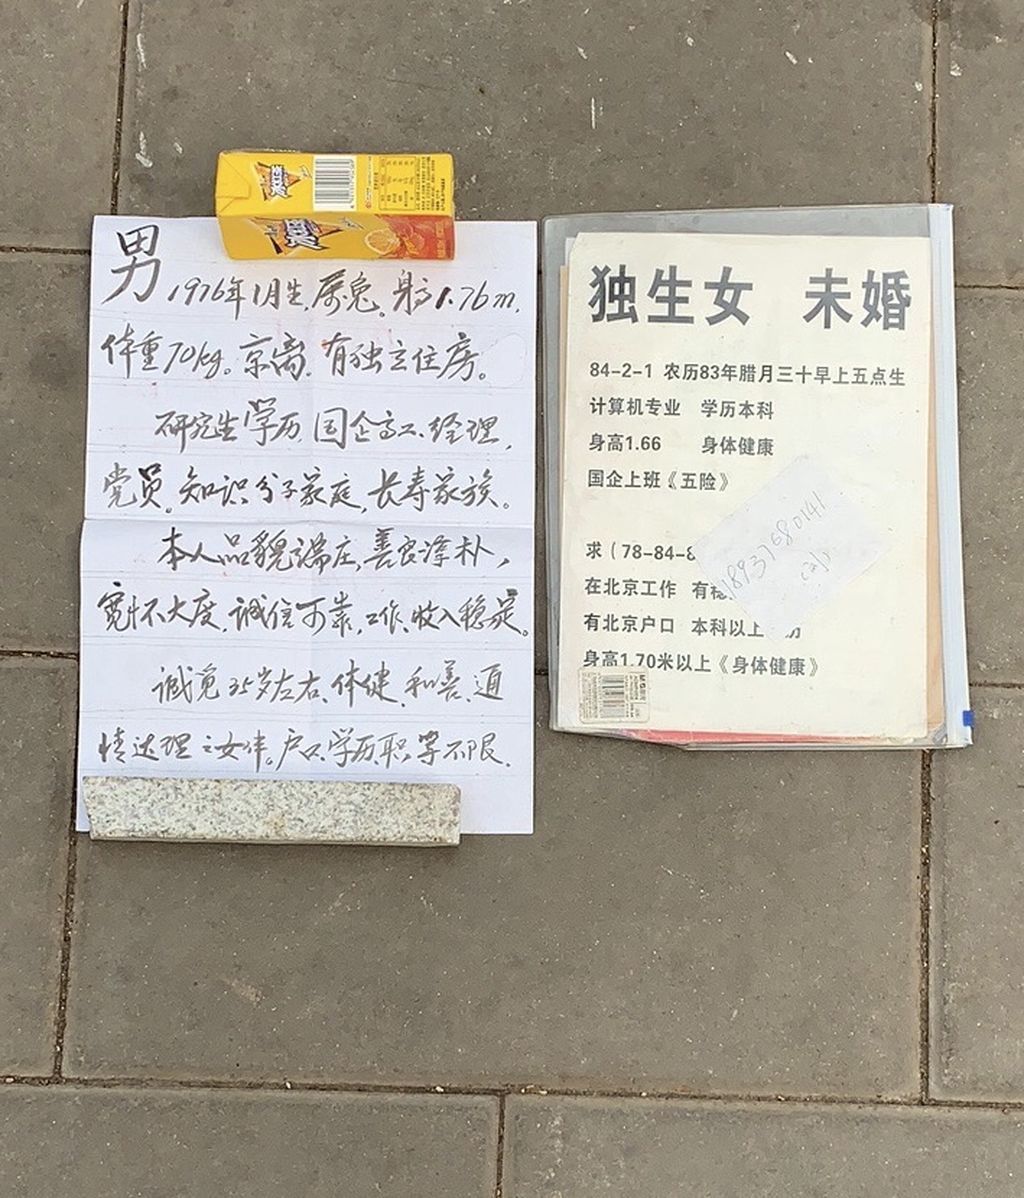 男 1976年1月生.属兔.身高1.76m.
体重70kg。京离.有独立住房。
研究生学历.国企高工.经理.
党员.知识分子家庭,长寿家族。
本人品貌端庄,善良淳朴,
宽怀大度.诚信可靠,工作.收入稳定。
诚觅35岁左右.体健.和善.通
情达理之女伴。户口.学历.职等不限.
独生女 未婚
84-2-1 农历83年腊月三十早上五点生
计算机专业 学历本科
身高1.66 身体健康
国企上班《五险》
求(78-84-
在北京工作 有
有北京户口 本科以上
身高1.70米以上《身体健康》